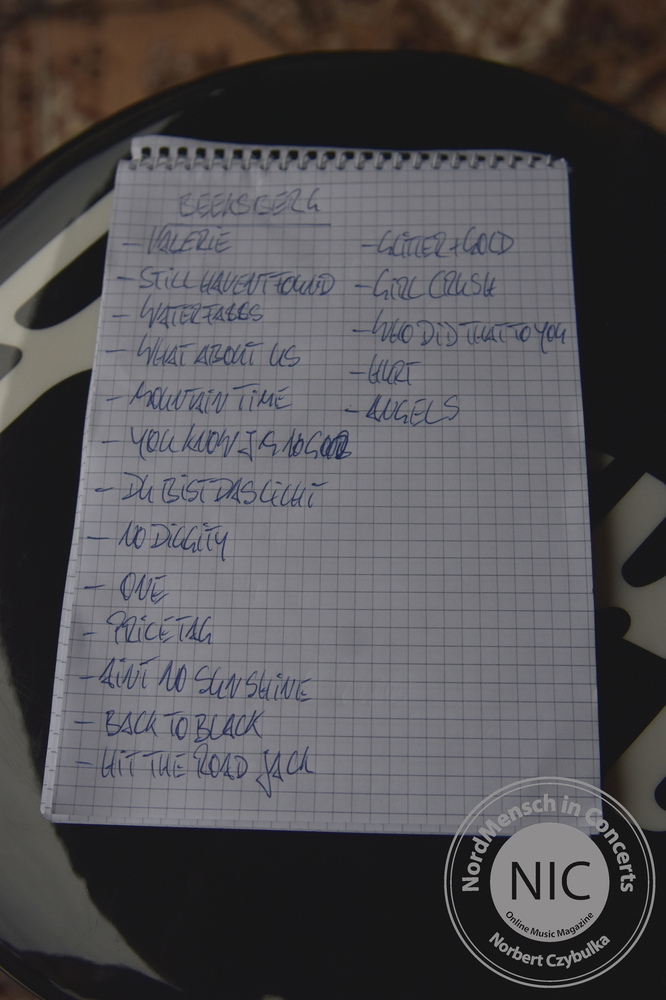 BEEKSBERG
- VALERIE
- STILL HAVENT FOUND
- WATERFALLS
- WHAT ABOUT US
- MOUNTAIN TIME
- YOU KNOW I'M NO GOOD
- DU BIST DAS LICHT
- NO DIGGITY
- ONE
- PRICETAG
- AINT NO SUNSHINE
- BACK TO BLACK
- HIT THE ROAD JACK
- GLITTER + GOLD
- GIRL CRUSH
- WHO DID THAT TO YOU
- HURT
- ANGELS
NordMensch in Concerts
NIC
Online Music Magazine
Norbert Czybulka